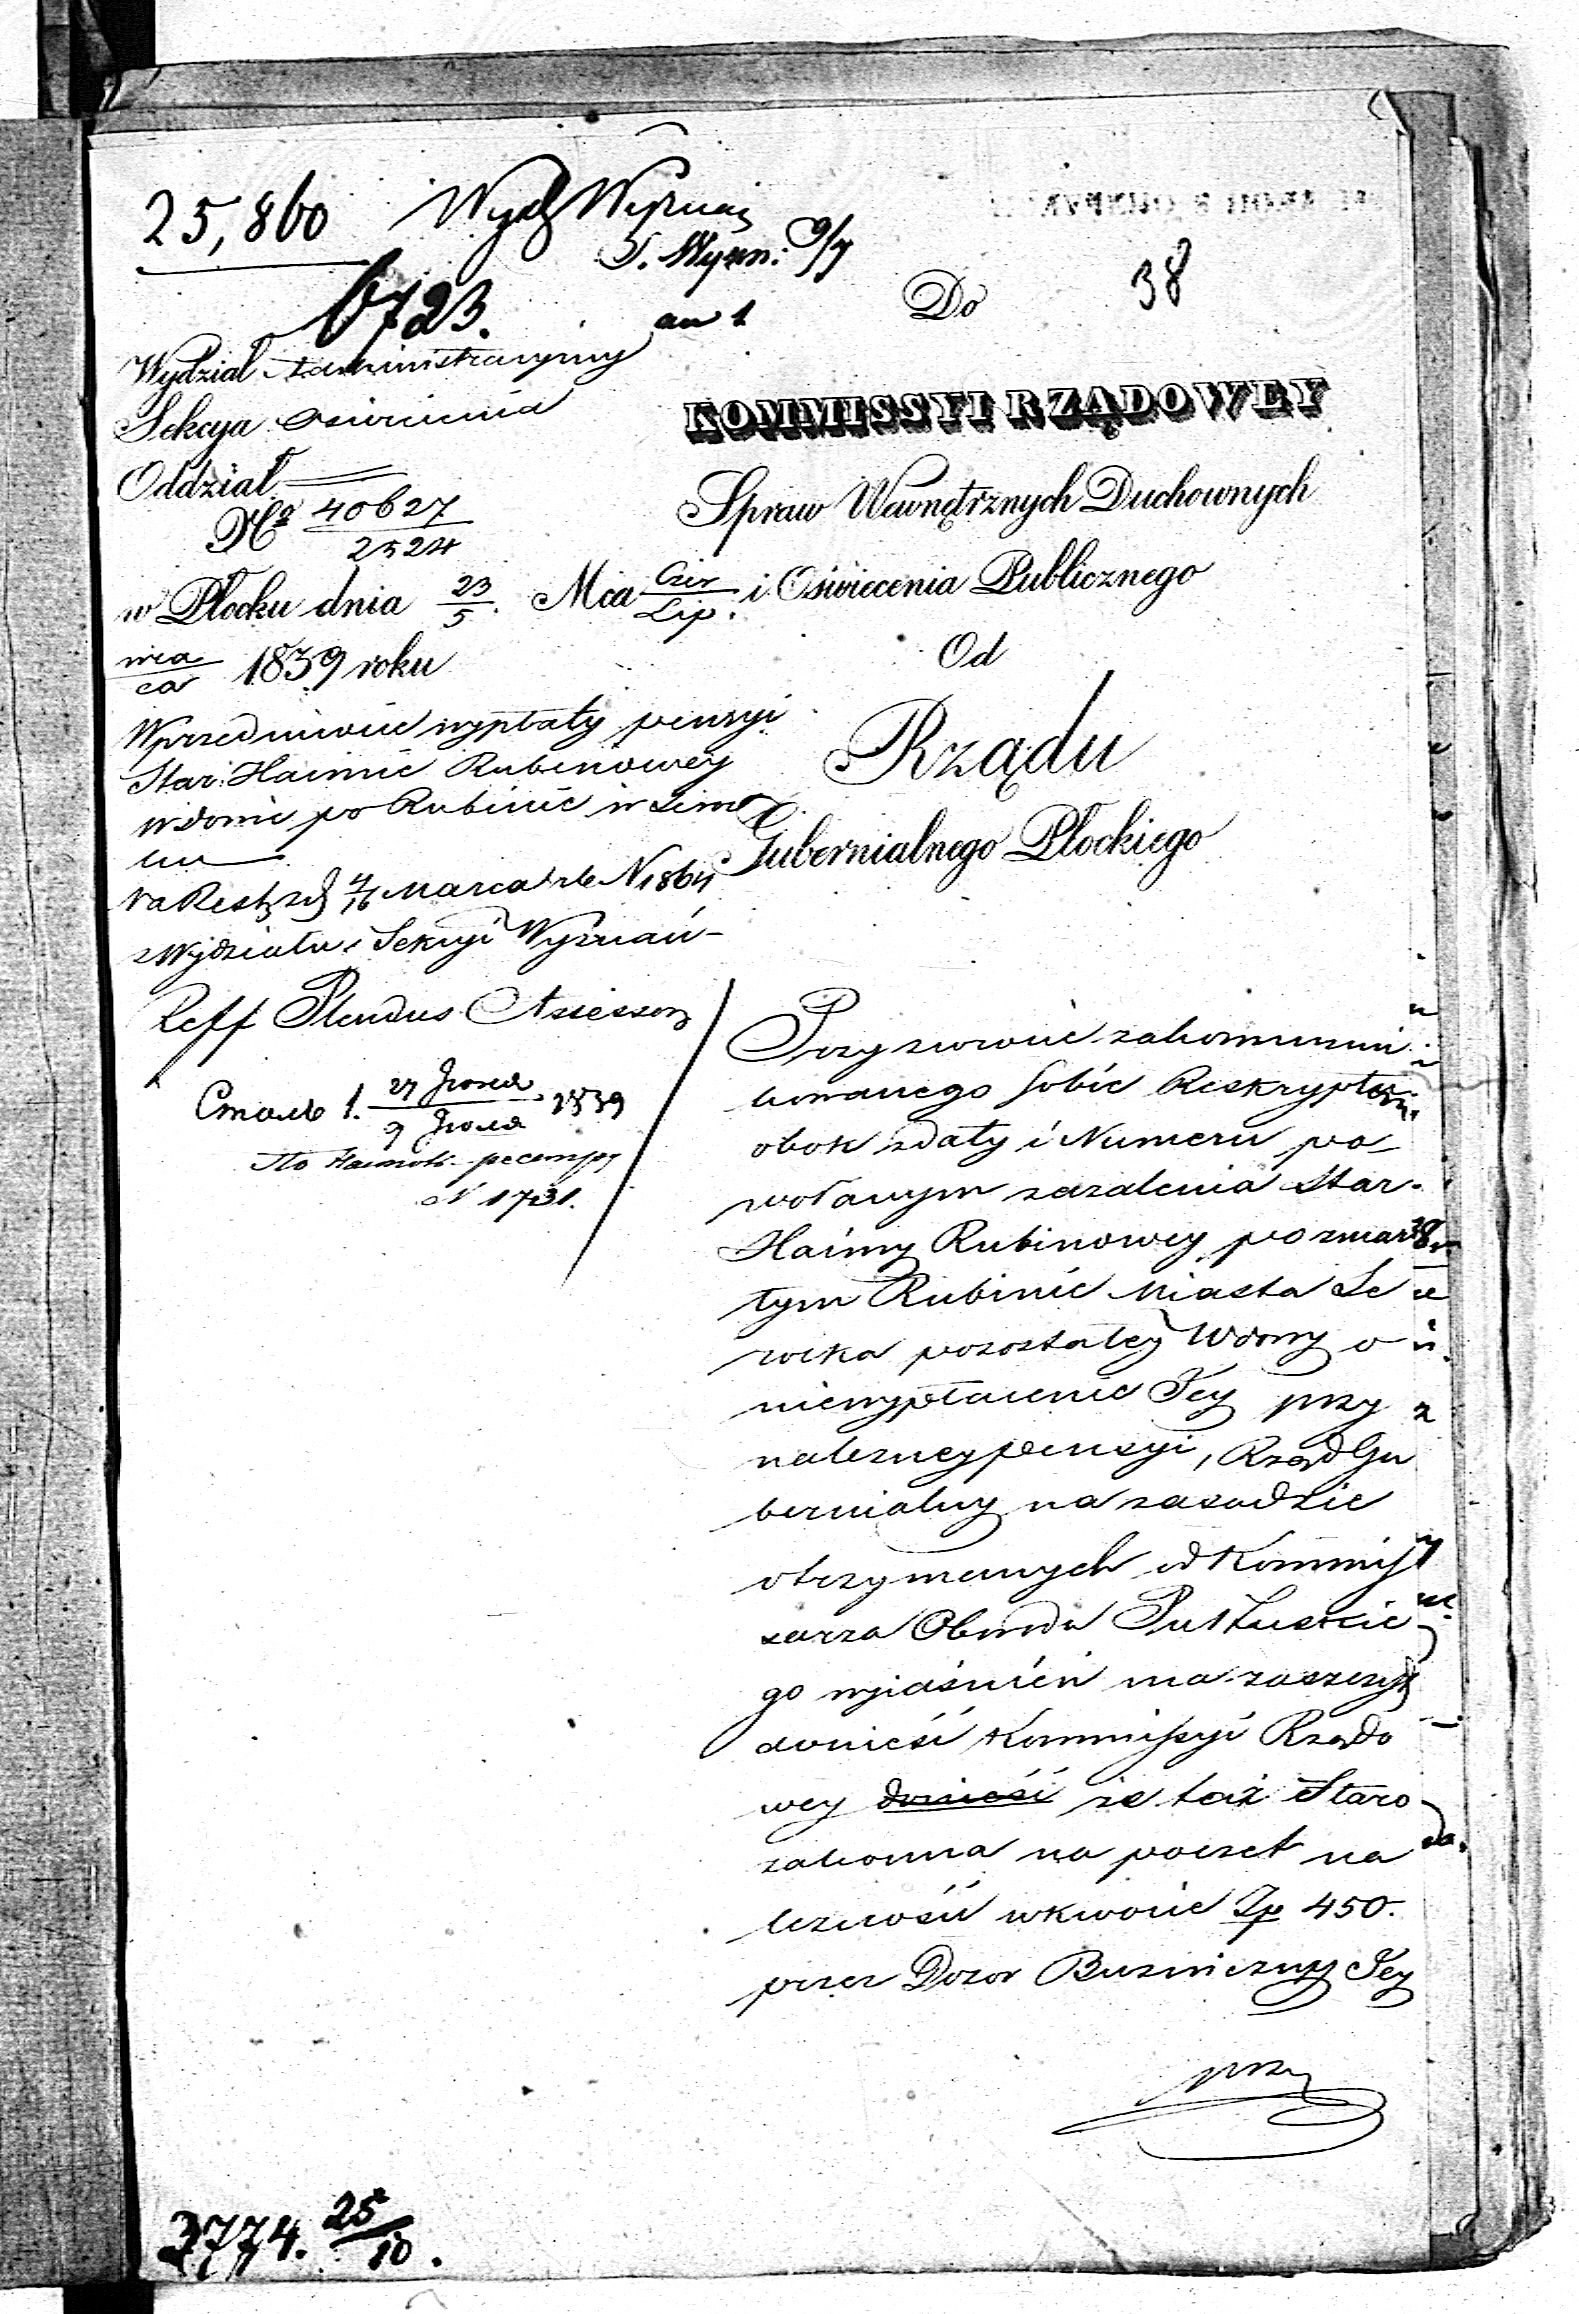 25,860
Wydz Wyznań
S. Wyzn: 9/7
6723.
an 1
Do
38
Wydział Administracyjny
Sekcya Oświecenia
Oddział
No 40627
2524
w Płocku dnia 23/5. Mca Czer/Lip:
wca/ca 1839 roku
KOMMISSYI RZĄDOWEY
Spraw Wewnętrznych Duchownych
i Oświecenia Publicznego
Od
Rządu
Gubernialnego Płockiego
W przedmiocie wypłaty pensyi
Star: Haimie Rubinowey
wdowie po Rubinie w
Na Reskr z d 4/16 Marca N 1864
z Wydziału i Sekcyi Wyznań
Reff Plendus Assessor
1. 27 Іюня/9 Іюля 1839
N 1731.
Przyzwoicie zakommuni
kowanego sobie Reskryptem
obok z daty i Numeru po
wołanym zażalenia Star.
Haimy Rubinowey po zmar
łym Rubinie Miasta Se
rocka pozostałey Wdowy o
niewypłacenie Jey przy
należney pensyi, Rząd Gu
bernialny na zasadzie
otrzymanych od Kommis
sarza Obwodu Pułtuskie
go wyjaśnień ma zaszczyt
donieść Kommissyi Rządo
wey donieść że taż Staro
zakonna na poczet na
leżności w kwocie Zp 450.
przez Dozor Bużniczny Jey
przy
3774. 25/10.